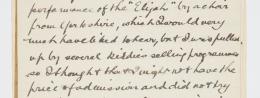 performance of the "Elijah" by a choir
from Yorkshire, which I would very
much have liked to hear, but I was pulled
up by several kiddies selling programmes
so I thought that I might not have the
price of admission and did not try